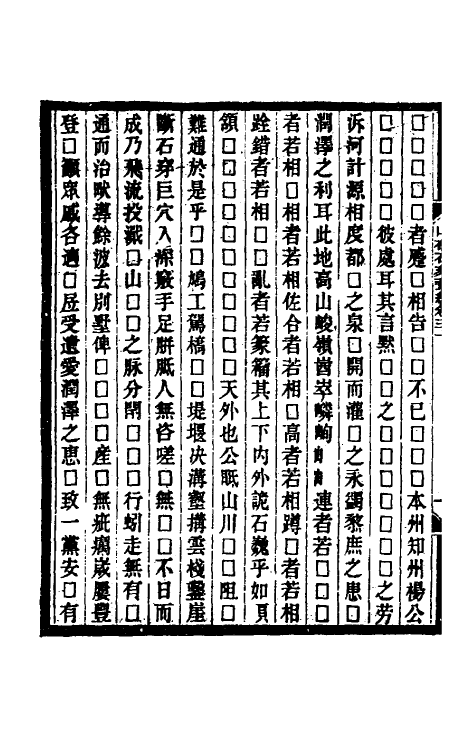 □□□□□者蹙□相告□□不已□□□本州知州楊公
□□□□□彼處耳其言黙□□之□□□□□□□之劳
泝河計源相度都□之泉□開而灌□之永蠲黎庶之患□
潤澤之利耳此地高山峻嶺崷崒嶙峋連者若□□□□
者若相□相者若相佐合者若相□高者若相蹲□者若相
跧錯者若相□□亂者若篆籀其上下内外詭石巍乎如頁
領□□□□□□□□□□□天外也公眂山川□□□阻□
難通於是乎□□鳩工駕橋□□堤堰决溝壑搆雲棧鑿崖
斷石穿巨穴入深竅手足胼胝人無咨嗟□無□□不日而
成乃飛流投濺□山□□之脉分閉□□□□行蚓走無有□
通而治畎導餘波去別墅俾□□□□産□無疵癘歲屢豐
登□顯眾咸各適□居受遺愛潤澤之恵□致一黨安□有